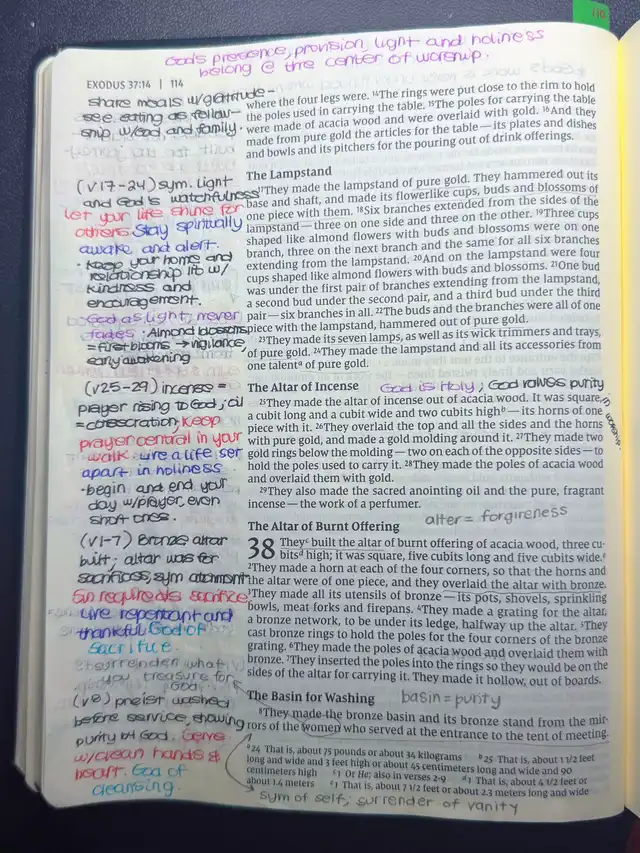 110
God's presence, provision, light and holiness
belong @ the center of worship.
EXODUS 37:14 | 114
share meals w/gratitude -
see eating as fellow-
ship w/God and family.
(v17-24) sym. light
and God's watchfulness
let your life shine for
others. Stay spiritually
awake and alert.
· keep your home and
relationship lit w/
kindness and
encouragement.
God as light; never
fades · Almond blossoms
= first blooms → vigilance,
early awakening
(v25-29) incense =
prayer rising to God; oil
= consecration; keep
prayer central in your
walk. Live a life set
apart in holiness
· begin and end your
day w/prayer, even
short ones.
(v1-7) Bronze altar
built; altar was for
sacrifices; sym atonement
Sin requires sacrifice;
Live repentant and
thankful. God of
sacrifice.
surrender what
you treasure for
God
(v8) preist washed
before service, showing
purity b4 God. Serve
w/clean hands &
heart. God of
cleansing.
where the four legs were. 14The rings were put close to the rim to hold
the poles used in carrying the table. 15The poles for carrying the table
were made of acacia wood and were overlaid with gold. 16And they
made from pure gold the articles for the table—its plates and dishes
and bowls and its pitchers for the pouring out of drink offerings.
The Lampstand
17They made the lampstand of pure gold. They hammered out its
base and shaft, and made its flowerlike cups, buds and blossoms of
one piece with them. 18Six branches extended from the sides of the
lampstand—three on one side and three on the other. 19Three cups
shaped like almond flowers with buds and blossoms were on one
branch, three on the next branch and the same for all six branches
extending from the lampstand. 20And on the lampstand were four
cups shaped like almond flowers with buds and blossoms. 21One bud
was under the first pair of branches extending from the lampstand,
a second bud under the second pair, and a third bud under the third
pair—six branches in all. 22The buds and the branches were all of one
piece with the lampstand, hammered out of pure gold.
23They made its seven lamps, as well as its wick trimmers and trays,
of pure gold. 24They made the lampstand and all its accessories from
one talenta of pure gold.
The Altar of Incense God is Holy; God values purity
in worship.
25They made the altar of incense out of acacia wood. It was square,
a cubit long and a cubit wide and two cubits highb—its horns of one
piece with it. 26They overlaid the top and all the sides and the horns
with pure gold, and made a gold molding around it. 27They made two
gold rings below the molding—two on each of the opposite sides—to
hold the poles used to carry it. 28They made the poles of acacia wood
and overlaid them with gold.
29They also made the sacred anointing oil and the pure, fragrant
incense—the work of a perfumer.
The Altar of Burnt Offering alter = forgireness
38 Theyc built the altar of burnt offering of acacia wood, three cu-
bitsd high; it was square, five cubits long and five cubits wide.e
2They made a horn at each of the four corners, so that the horns and
the altar were of one piece, and they overlaid the altar with bronze.
3They made all its utensils of bronze—its pots, shovels, sprinkling
bowls, meat forks and firepans. 4They made a grating for the altar,
a bronze network, to be under its ledge, halfway up the altar. 5They
cast bronze rings to hold the poles for the four corners of the bronze
grating. 6They made the poles of acacia wood and overlaid them with
bronze. 7They inserted the poles into the rings so they would be on the
sides of the altar for carrying it. They made it hollow, out of boards.
The Basin for Washing basin = purity
8They made the bronze basin and its bronze stand from the mir-
rors of the women who served at the entrance to the tent of meeting.
a24 That is, about 75 pounds or about 34 kilograms b25 That is, about 1 1/2 feet
long and wide and 3 feet high or about 45 centimeters long and wide and 90
centimeters high c1 Or He; also in verses 2-9 d1 That is, about 4 1/2 feet or
about 1.4 meters e1 That is, about 7 1/2 feet or about 2.3 meters long and wide
sym of self; surrender of vanity